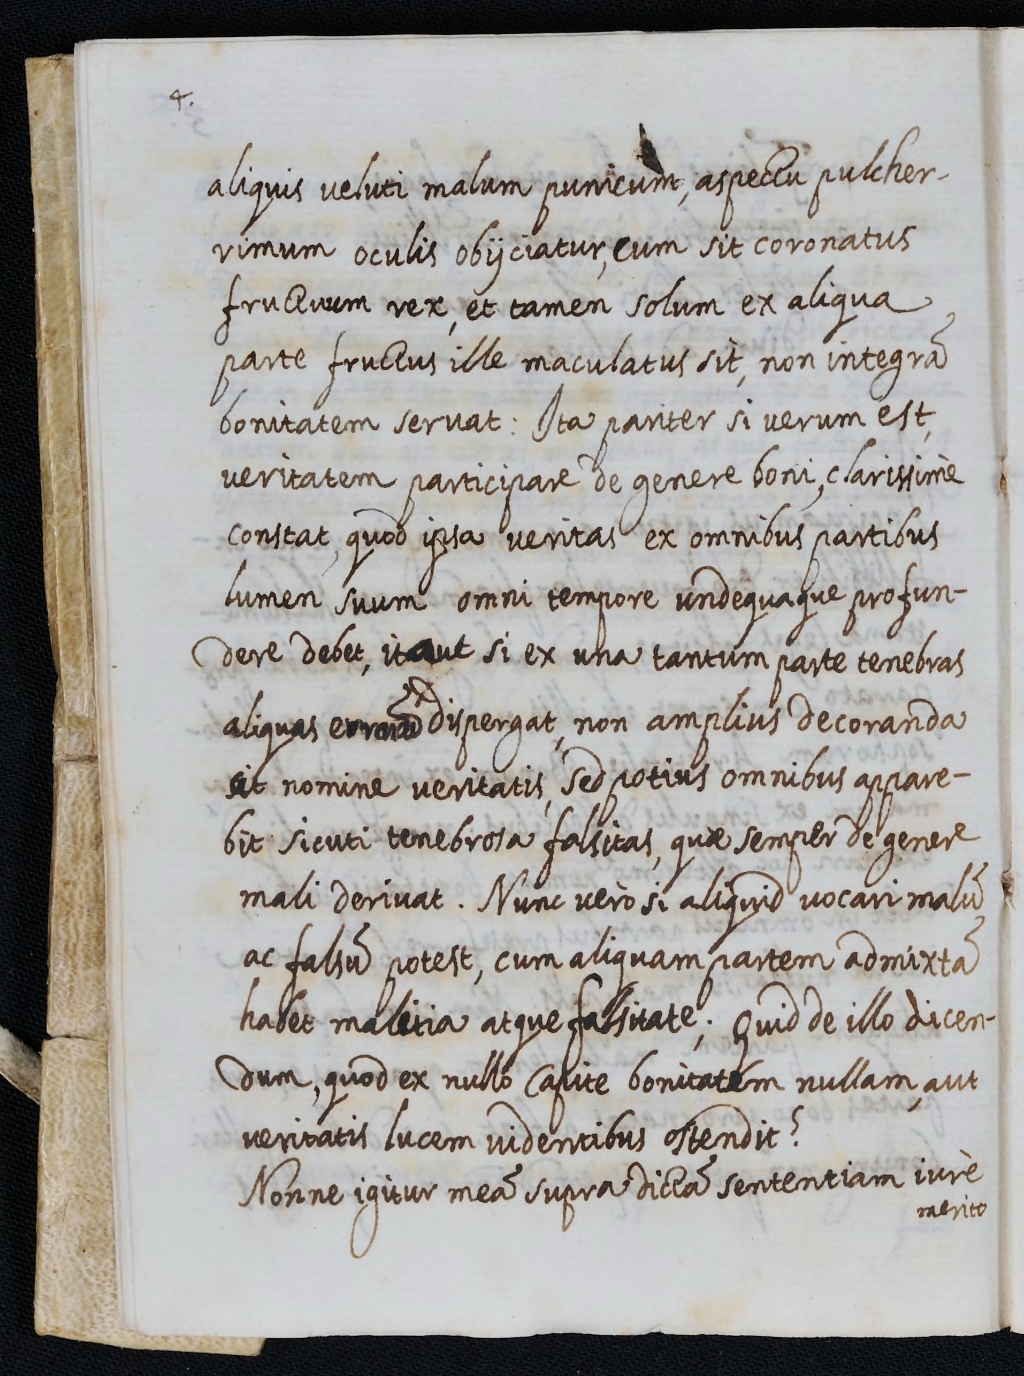 4.
aliquis veluti malum punicum, aspectu pulcher-
rimum oculis obijciatur, cum sit coronatus
fructuum rex, et tamen solum ex aliqua
parte fructus ille maculatus sit, non integrã
bonitatem servat: Ita pariter si verum est,
veritatem participare de genere boni, clarissimè
constat, quod ipsa veritas ex omnibus partibus
lumen suum omni tempore undequaque profun-
dere debet, itaut si ex una tantum parte tenebras
aliquas dispergat, non amplius decoranda
sit nomine veritatis, sed potius omnibus appare-
bit sicuti tenebrosa falsitas, quæ semper de genere
mali derivat. Nunc verò si aliquid vocari malũ
ac falsũ potest, cum aliquam partem admixtã
habet malitia atque falsitate; Quid de illo dicen-
dum, quod ex nullo capite bonitatem nullam, aut
veritatis lucem videntibus ostendit?
Nonne igitur meã supra dictã sententiam iurè
merito